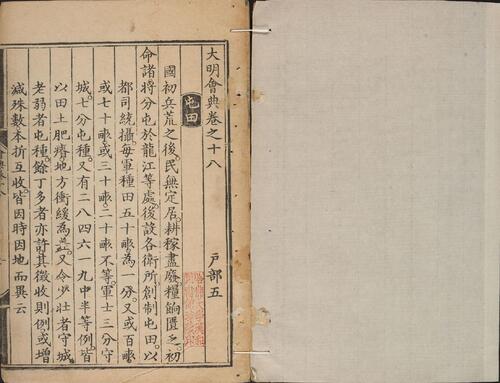 大明會典卷之十八
戶部五
屯田
國初兵荒之後民無定居耕稼盡廢糧餉匱乏初
命諸將分屯於龍江等處後設各衛所創制屯田以
都司統攝每軍種田五十畝為一分又或百畝
或七十畝或三十畝二十畝不等軍士三分守
城七分屯種又有二八四六一九中半等例皆
以田土肥瘠地方衝緩為差又令少壯者守城
老弱者屯種餘丁多者亦許其徵收則例或增
減殊數本折互收皆因時因地而異云